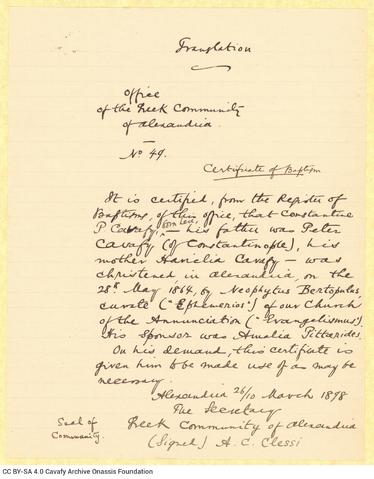 Translation
Office
of the Greek Community
of Alexandria.
No 49.
Certificate of Baptism
It is certified, from the Register of
Baptisms, of this office, that Constantine
P Cavafy, born here, — his father was Peter
Cavafy (of Constantinople), his
mother Hariclia Cavafy — was
christened in Alexandria, on the
28th May 1864, by Neophytus Bertopulus,
curate ("Ephemerios") of our Church
of the Annunciation ("Evangelismus").
His Sponsor was Amalia Pittarides.
On his demand, this certificate is
given him to be made use of as may be
necessary.
Alexandria 26/10 March 1898
The Secretary
Seal of
Community.
Greek Community of Alexandria
(Signed) A. C. Clessi
CC BY-SA 4.0 Cavafy Archive Onassis Foundation